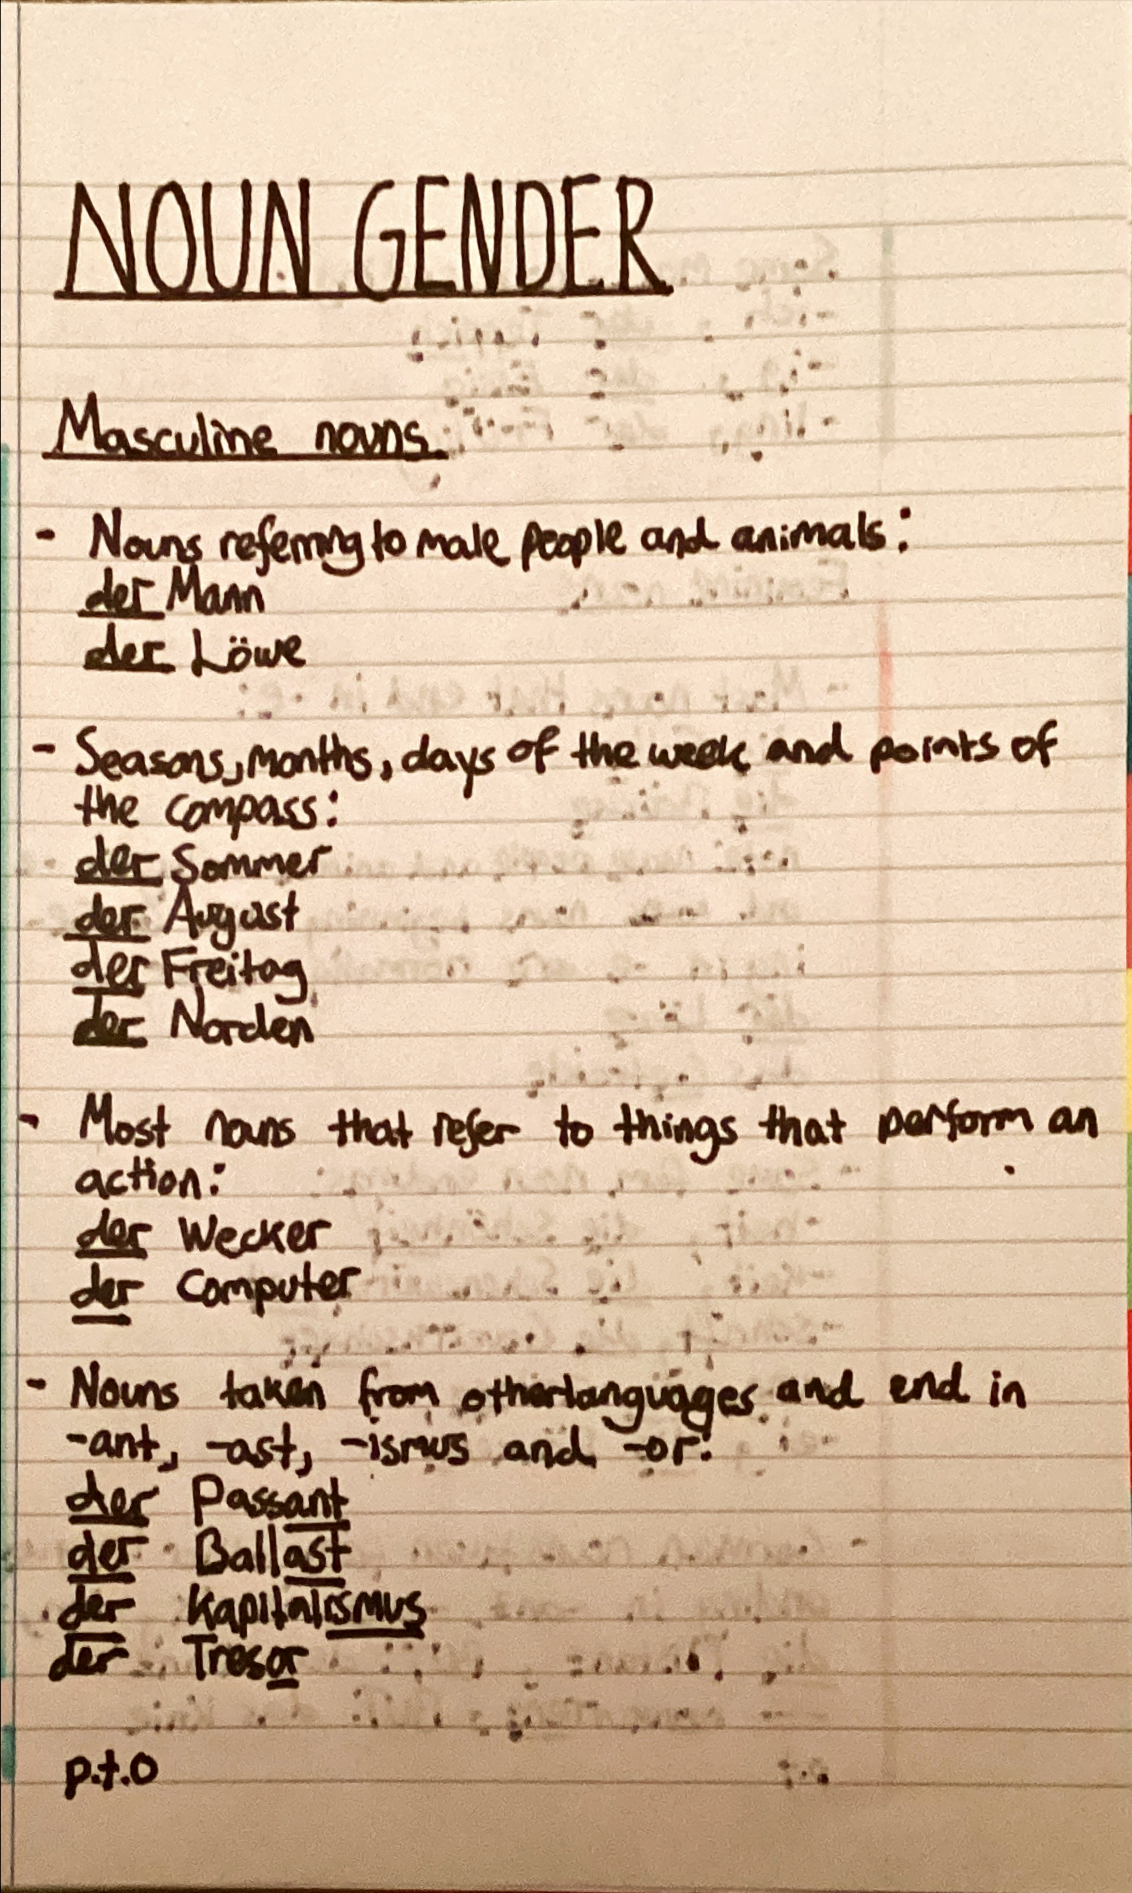 NOUN GENDER
Masculine nouns
- Nouns referring to male people and animals:
der Mann
der Löwe
- Seasons, months, days of the week and points of
the compass:
der Sommer
der August
der Freitag
der Norden
- Most nouns that refer to things that perform an
action:
der Wecker
der Computer
- Nouns taken from other languages and end in
-ant, -ast, -ismus and -or:
der Passant
der Ballast
der Kapitalismus
der Tresor
p.t.o